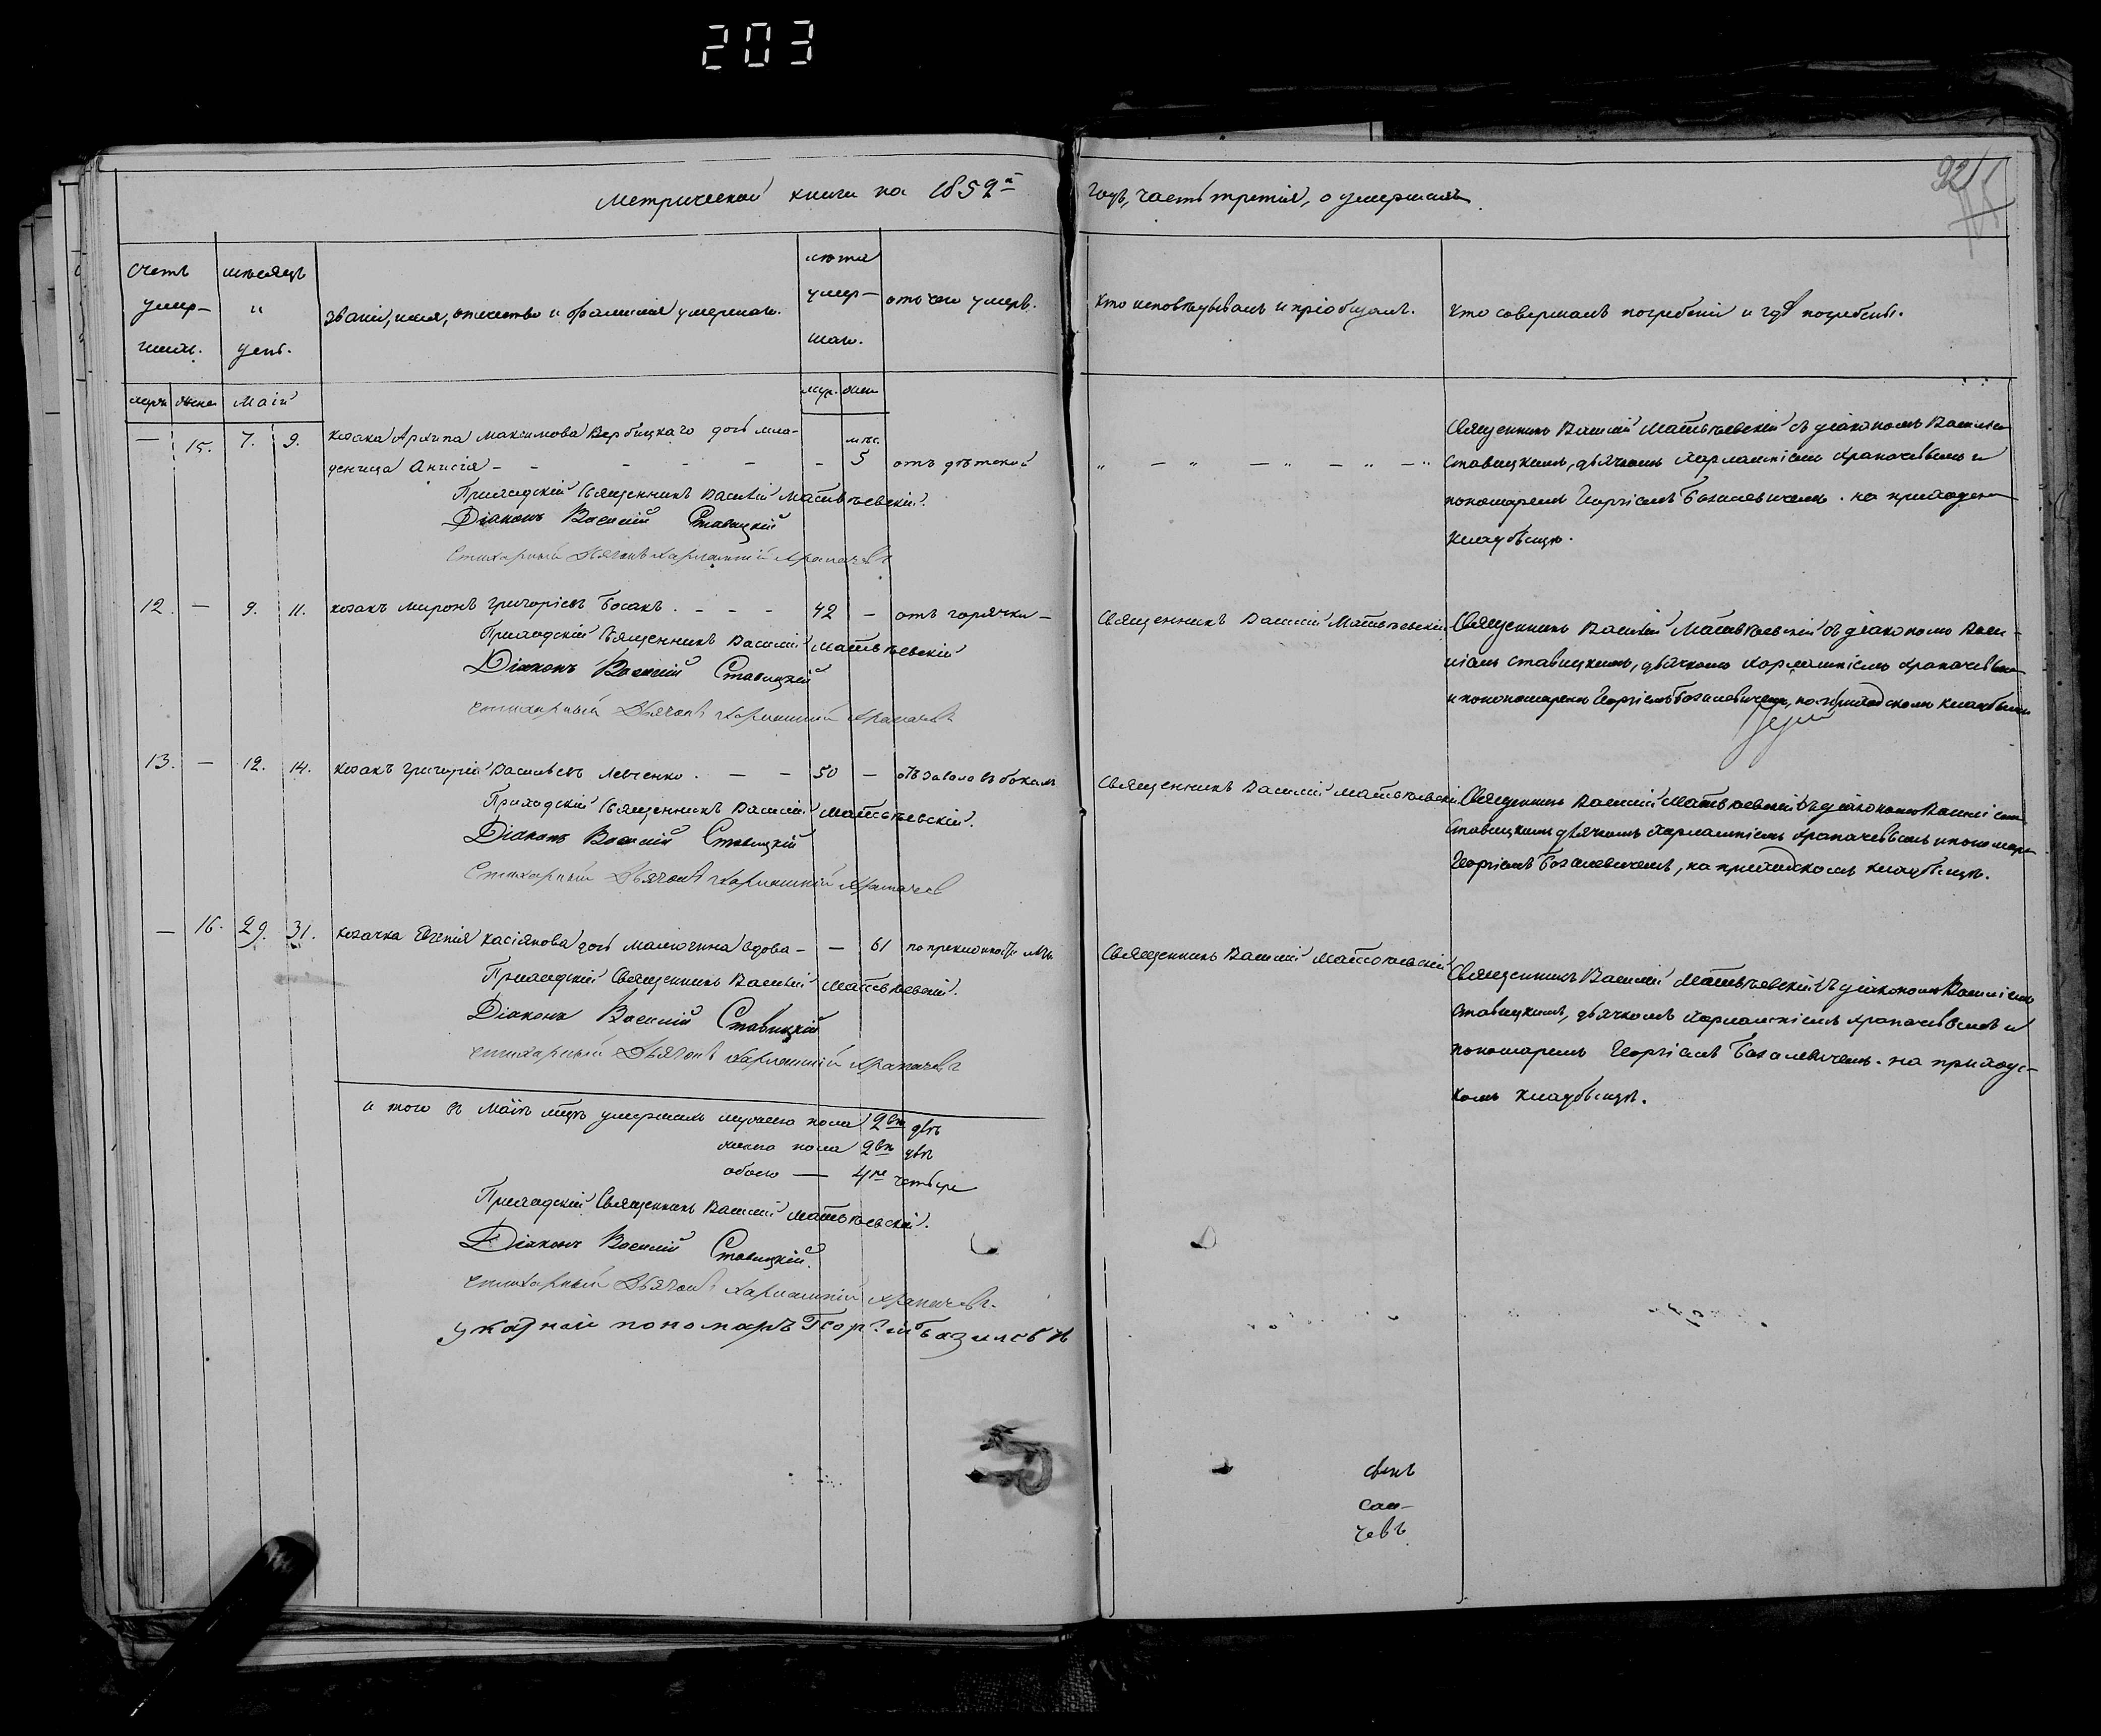 203
92
Метрической книги на 1852й годъ, часть третія, о умершихъ
Счетъ умер-шихъ.
мѣсяцъ и день.
званіе, имя, отчество и фамилія умершаго.
лѣта умер-шаго.
отъ чего умеръ.
кто исповѣдывалъ и пріобщалъ.
кто совершалъ погребеніе и гдѣ погребены.
муж. женс. Маій
муж. жен.
— 15. 7. 9. козака Архипа Максимова Вербицкаго дочь мла-
деница Анисія - - - - - - - мѣс. 5 отъ дѣтской
Приходскій Священникъ Василій Матвѣевскій.
Діаконъ Василій Ставицкій
Стихарный Дьячокъ Харлампій Храпачевъ
Священникъ Василій Матвѣевскій съ діакономъ Василіемъ
Ставицкимъ, дьячкомъ Харлампіемъ Храпачевымъ и
пономаремъ Георгіемъ Базилевичемъ. на приходском
кладбищѣ.
12. — 9. 11. козакъ Миронъ Григоріевъ Босакъ. - - - 42 — отъ горячки —
Приходскій Священникъ Василій Матвѣевскій
Діаконъ Василій Ставицкій
стихарный Дьячокъ Харлампій Храпачевъ
Священникъ Василій Матвѣевскій
Священникъ Василій Матвѣевскій съ діакономъ Васи-
ліемъ Ставицкимъ, дьячкомъ Харлампіемъ Храпачевымъ
и понономаремъ Георгіемъ Базилевичемъ, на приходскомъ кладбищѣ
13. — 12. 14. козакъ Григорій Васильевъ Левченко. — — 50 — отъ завала въ бокахъ
Приходскій Священникъ Василій Матвѣевскій.
Діаконъ Василій Ставицкій
Стихарный Дьячокъ Харлампій Храпачев
Священникъ Василій Матвѣевскій
Священникъ Василій Матвѣевскій съ діакономъ Василіемъ
Ставицкимъ дьячкомъ Харлампіемъ Храпачевымъ и пономаре
Георгіемъ Базилевичемъ, на приходскомъ кладбищѣ.
— 16. 29. 31. козачка Евгенія Касіянова дочь Малючина вдова — — 61 по преклонности лѣтъ
Приходскій Священникъ Василій Матвѣевскій.
Діаконъ Василій Ставицкій
стихарный Дьячокъ Харлампій Храпачевъ
Священникъ Василій Матвѣевскій
Священникъ Василій Матвѣевскій съ діакономъ Василіемъ
Ставицкимъ, дьячкомъ Харлампіемъ Храпачевымъ и
пономаремъ Георгіемъ Базилевичемъ. на приходс-
комъ кладбищѣ.
и того въ Маіѣ мцѣ умершихъ мужеска пола 2ва два
женска пола 2вѣ двѣ
обоего — 4ре четыре
Приходскій Священникъ Василій Матвѣевскій.
Діаконъ Василій Ставицкій.
стихарный Дьячокъ Харлампій Храпачевъ.
указной пономаръ Георгій Базилевъ